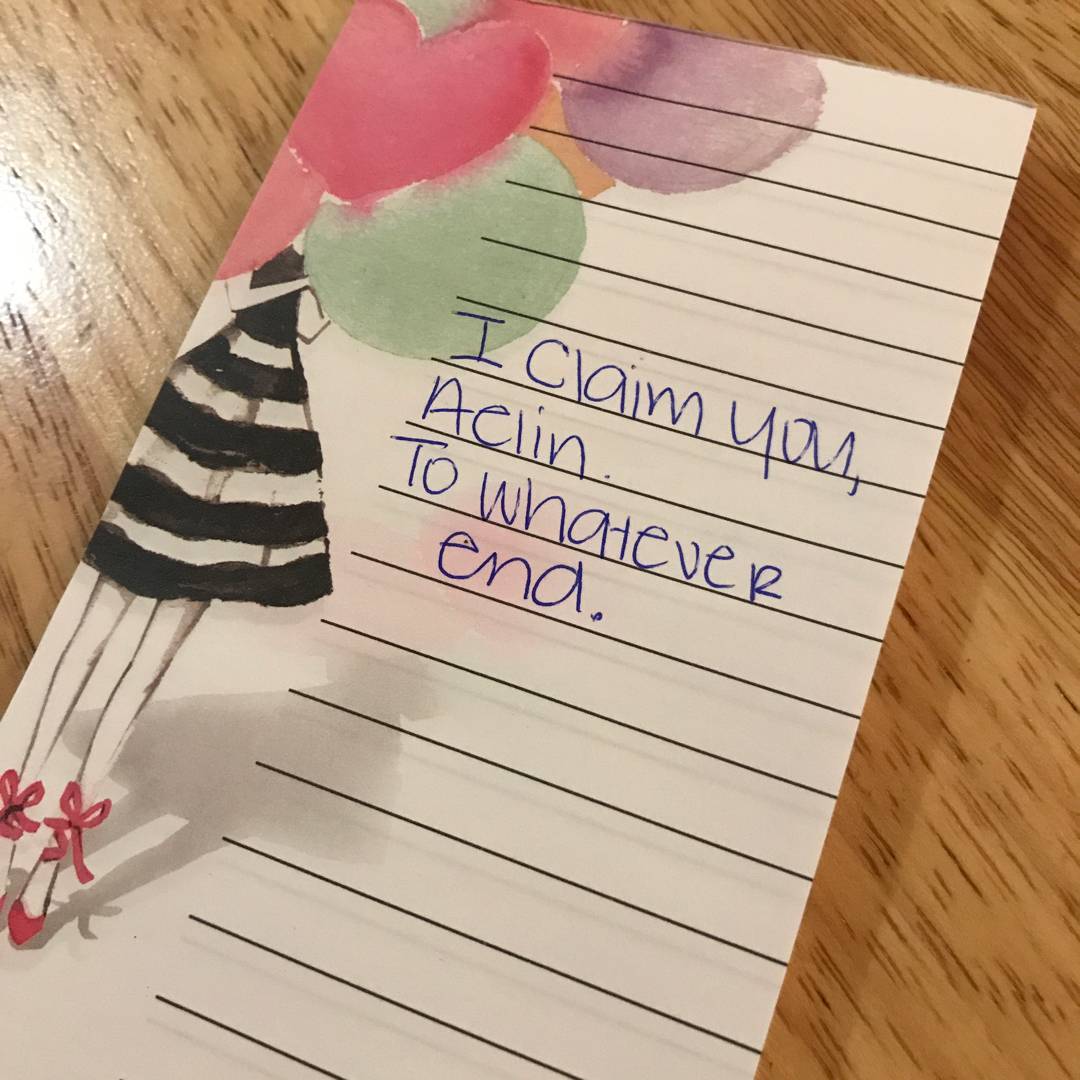 I claim you,
Aelin.
To whatever
end.